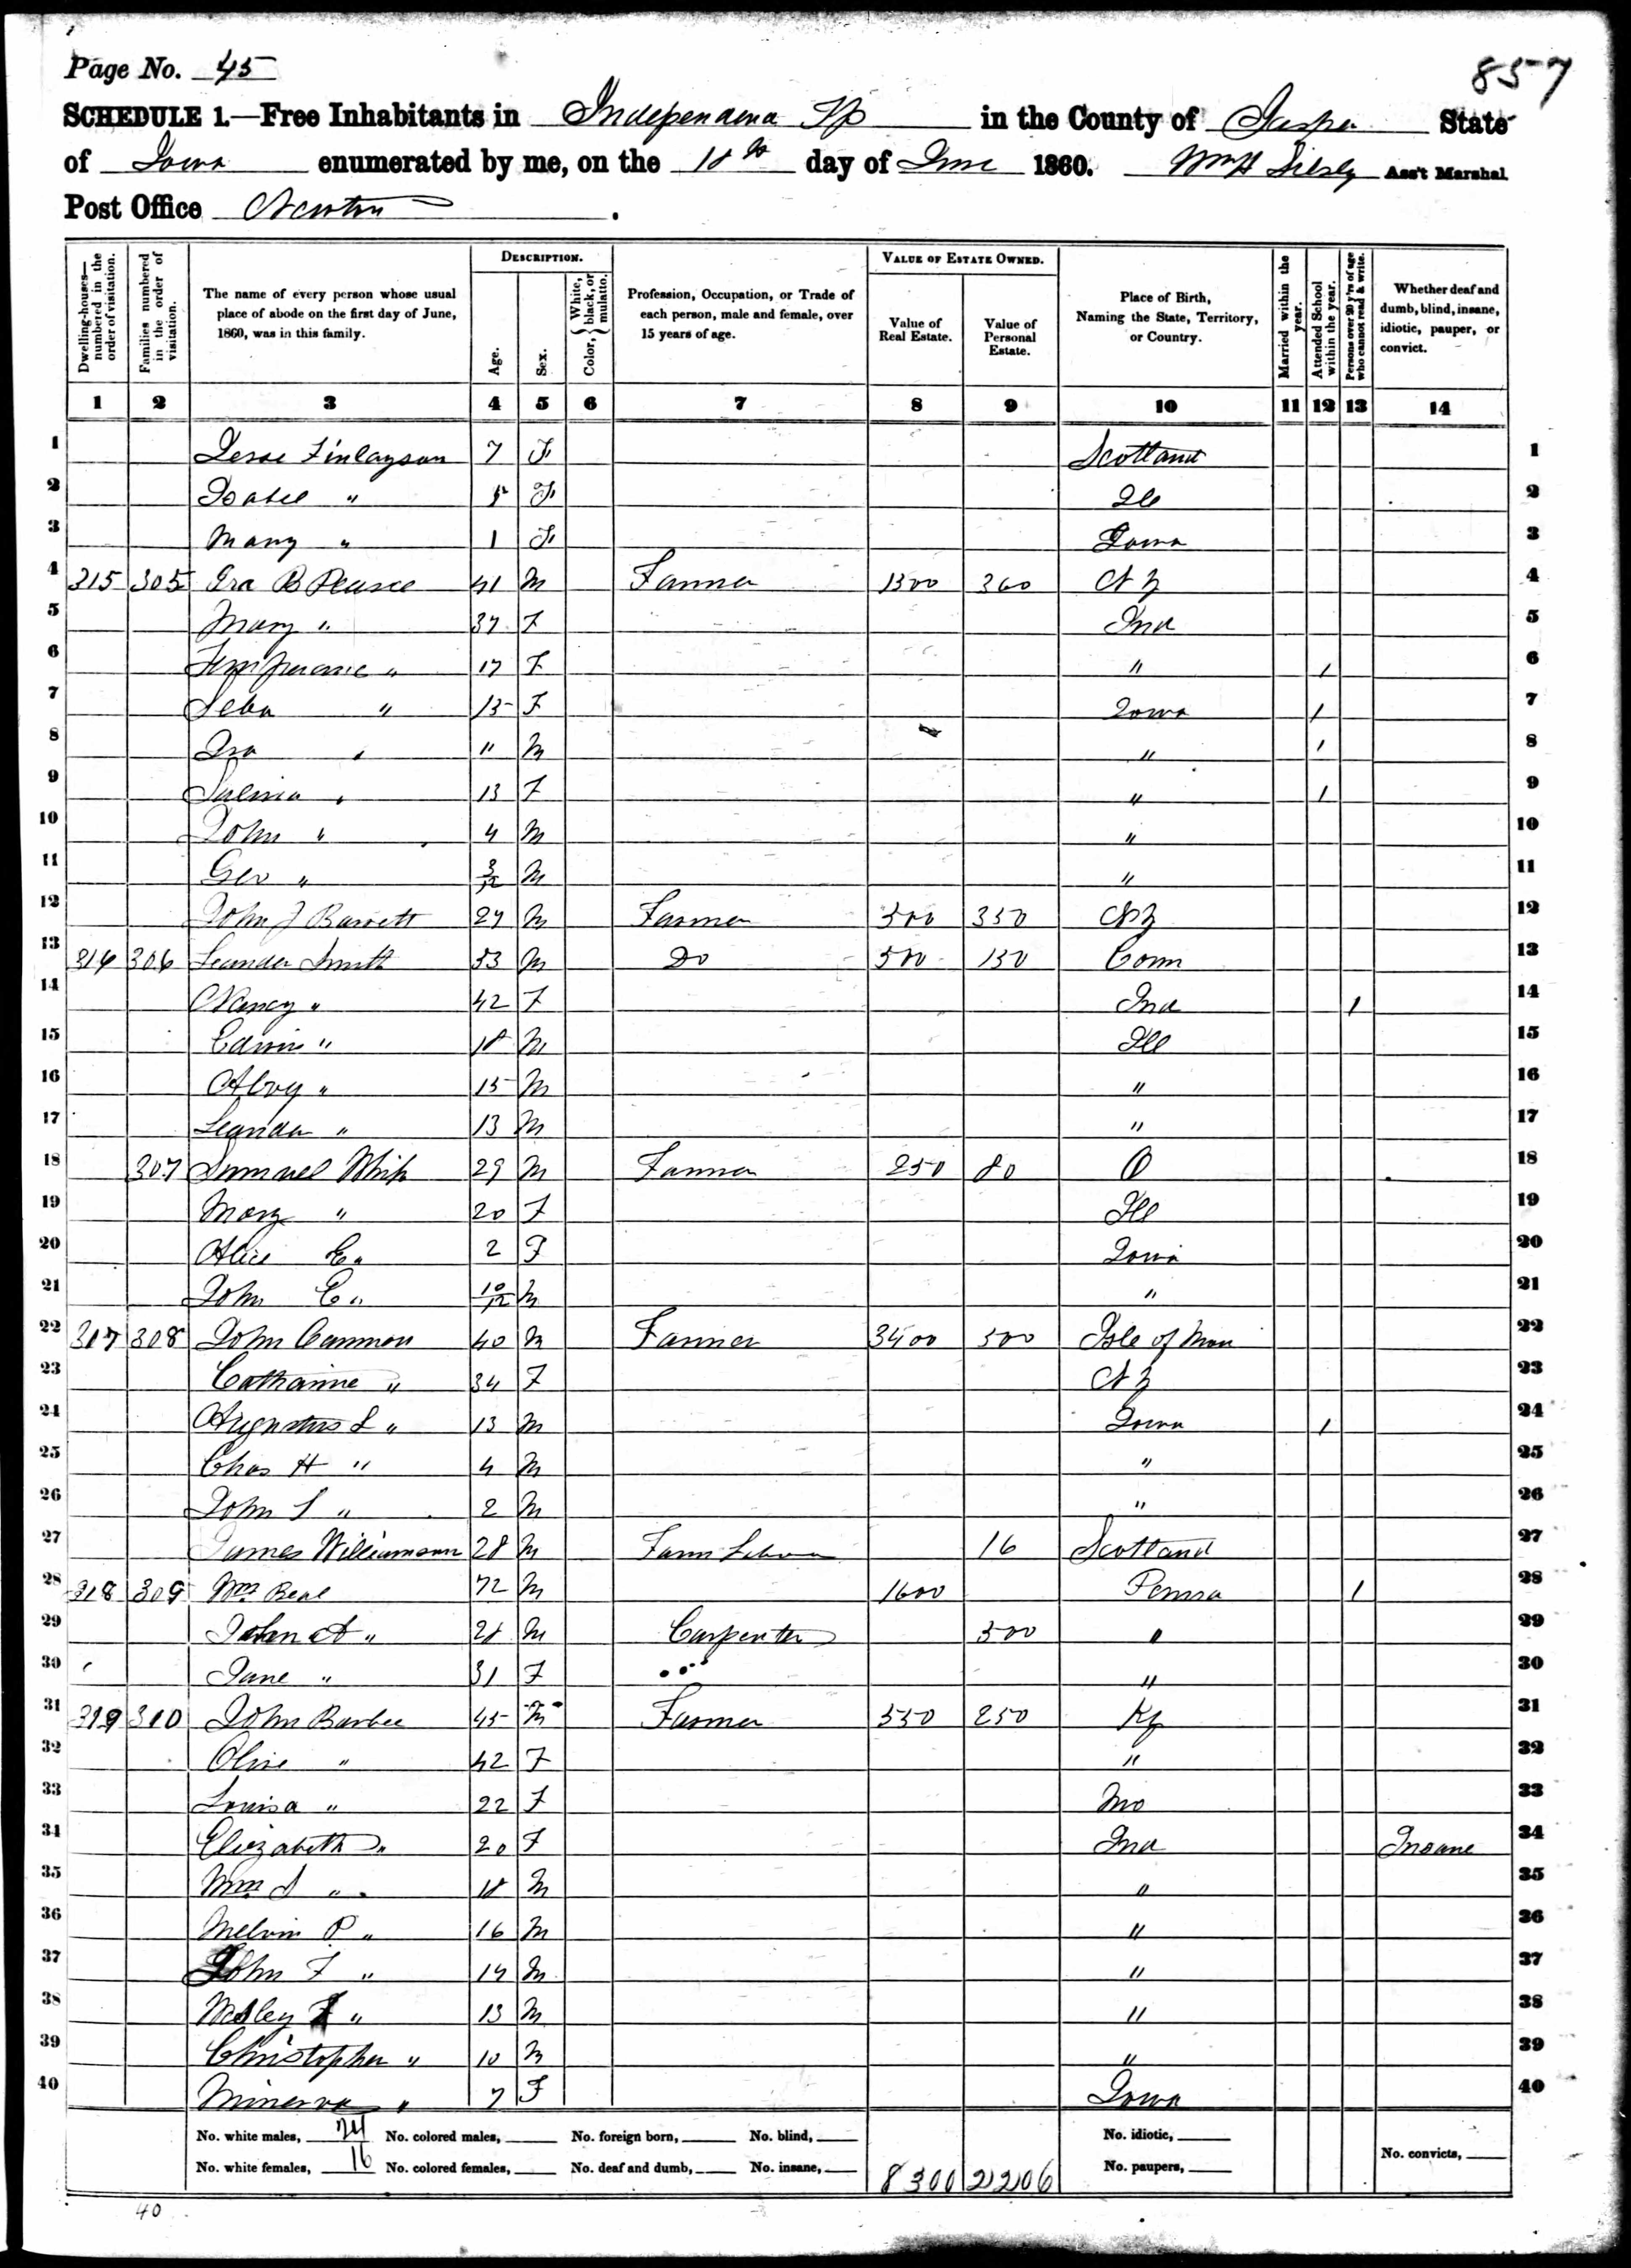 Page No. 45
857
SCHEDULE 1.—Free Inhabitants in Independence Tp in the County of Jasper State
of Iowa enumerated by me, on the 18th day of June 1860. Wm H Silsby Ass't Marshal
Post Office Newton .
Dwelling-houses—numbered in the order of visitation.
Families numbered in the order of visitation.
The name of every person whose usual place of abode on the first day of June, 1860, was in this family.
DESCRIPTION.
Age.
Sex.
Color, { White, black, or mulatto.
Profession, Occupation, or Trade of each person, male and female, over 15 years of age.
VALUE OF ESTATE OWNED.
Value of Real Estate.
Value of Personal Estate.
Place of Birth, Naming the State, Territory, or Country.
Married within the year.
Attended School within the year.
Persons over 20 y'rs of age who cannot read & write.
Whether deaf and dumb, blind, insane, idiotic, pauper, or convict.
1 2 3 4 5 6 7 8 9 10 11 12 13 14
1 Finlayson 7 F Scotland 1
2 Isabel " F Ill 2
3 Mary " 1 F Iowa 3
4 315 305 Ira B Pearce 41 M Farmer 1300 360 N Y 4
5 Mary " 37 F Ind 5
6 Temperance " 17 F " 1 6
7 " 15 F Iowa 1 7
8 Ira " 11 M " 1 8
9 " 13 F " 1 9
10 John " 4 M " 10
11 Geo " 3/12 M " 11
12 John J Barrett 27 M Farmer 300 350 N Y 12
13 316 306 Leander Smith 53 M Do 500 130 Conn 13
14 Nancy " 42 F Ind 1 14
15 Edwin " 18 M Ill 15
16 Alvy " 15 M " 16
17 Leander " 13 M " 17
18 307 Samuel Whip 29 M Farmer 250 80 O 18
19 Mary " 20 F Ill 19
20 Alice E " 2 F Iowa 20
21 John C " 10/12 M " 21
22 317 308 John Cannon 40 M Farmer 3400 500 Isle of Man 22
23 Catharine " 34 F N Y 23
24 Augustus L " 13 M Iowa 1 24
25 Chas H " 4 M " 25
26 John S " 2 M " 26
27 James Williamson 28 M Farm Labor 16 Scotland 27
28 318 309 Wm Beal 72 M 1600 Penna 1 28
29 John A " 28 M Carpenter 300 " 29
30 Jane " 31 F " 30
31 319 310 John Barbee 45 M Farmer 550 250 Ky 31
32 Olive " 42 F " 32
33 Louisa " 22 F Mo 33
34 Elizabeth " 20 F Ind Insane 34
35 Wm S " 18 M " 35
36 Melvin P " 16 M " 36
37 John F " 14 M " 37
38 Wesley F " 13 M " 38
39 Christopher " 10 M " 39
40 Minerva " 7 F Iowa 40
No. white males, 24 No. colored males, No. foreign born, No. blind, No. idiotic,
No. white females, 16 No. colored females, No. deaf and dumb, No. insane, 8300 2206 No. paupers, No. convicts,
40